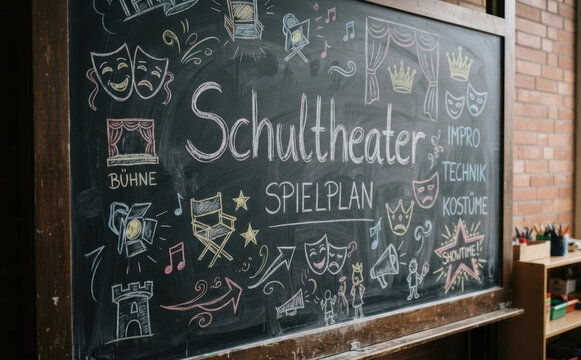 Schultheater
SPIELPLAN
BÜHNE
IMPRO
TECHNIK
KOSTÜME
SHOWTIME!